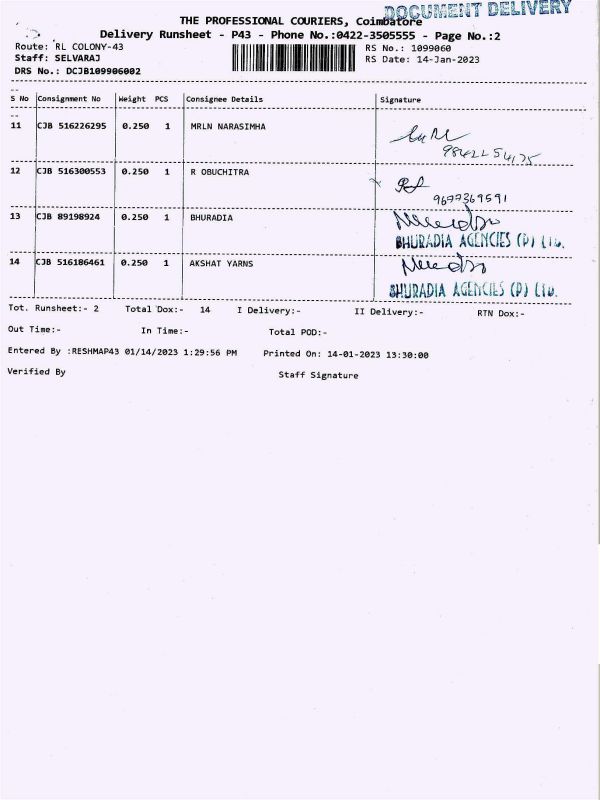 DOCUMENT DELIVERY
THE PROFESSIONAL COURIERS, Coimbatore
Delivery Runsheet - P43 - Phone No.:0422-3505555 - Page No.:2
Route: RL COLONY-43 RS No.: 1099060
Staff: SELVARAJ RS Date: 14-Jan-2023
DRS No.: DCJB109906002
S No Consignment No Weight PCS Consignee Details Signature
11 CJB 516226295 0.250 1 MRLN NARASIMHA
12 CJB 516300553 0.250 1 R OBUCHITRA
9677369591
13 CJB 89198924 0.250 1 BHURADIA
BHURADIA AGENCIES (P) Ltd.
14 CJB 516186461 0.250 1 AKSHAT YARNS
BHURADIA AGENCIES (P) Ltd.
Tot. Runsheet:- 2 Total Dox:- 14 I Delivery:- II Delivery:- RTN Dox:-
Out Time:- In Time:- Total POD:-
Entered By :RESHMAP43 01/14/2023 1:29:56 PM Printed On: 14-01-2023 13:30:00
Verified By Staff Signature